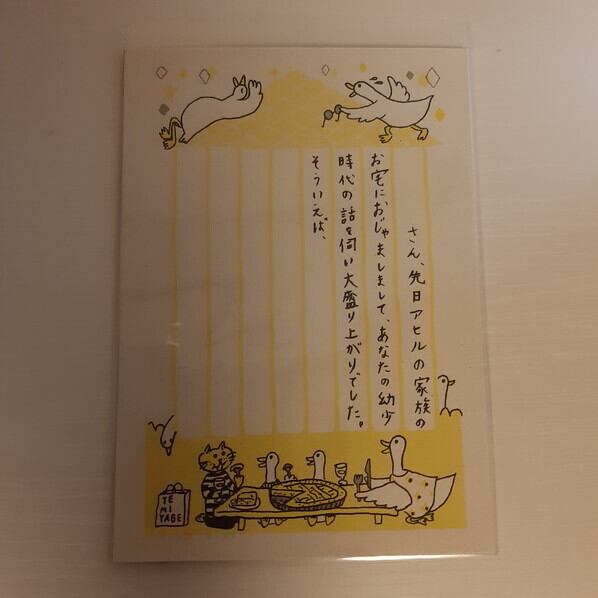 さん、先日アヒルの家族の
お宅におじゃましまして、あなたの幼少
時代の話を伺い大盛り上がりでした。
そういえば、
TE
MI
YAGE